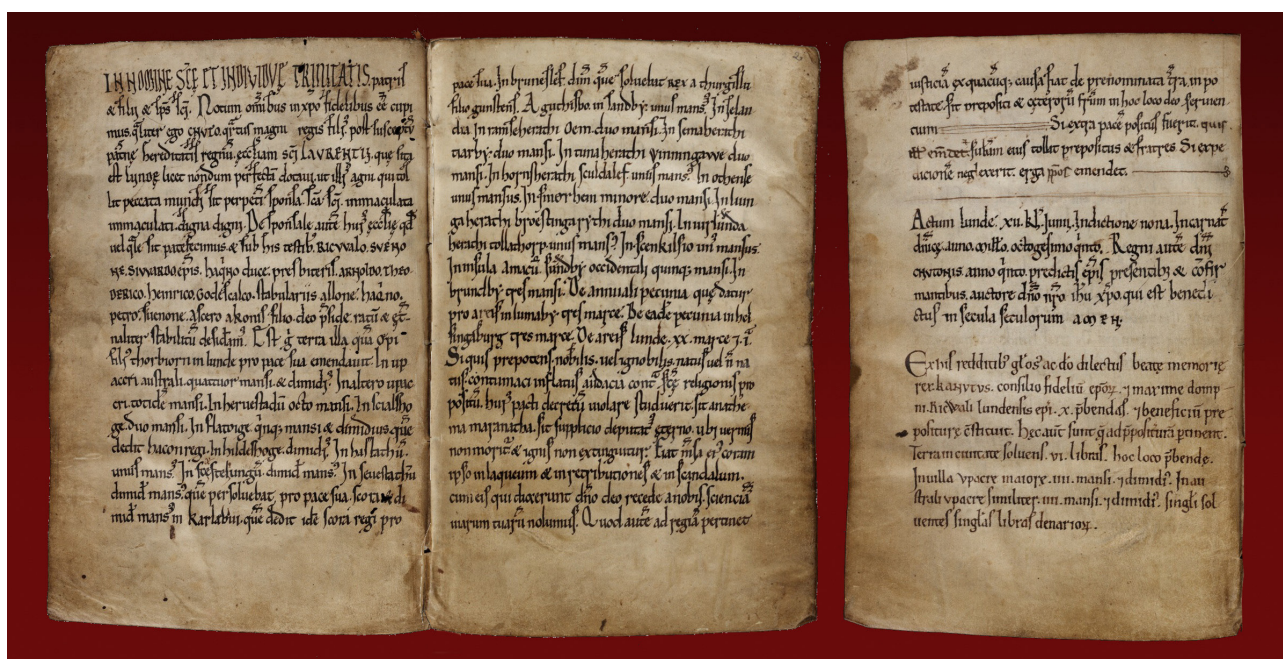 IN NOMINE SCE ET INDIVIDVE TRINITATIS. patris
& filii & sps sci. Notum omibus in xpo fidelibus ee cupi
mus. qliter ego CNVTO. qrtus magni regis fili'. post susceptu
paterne hereditatis regnu. eccliam sci LAVRENTII. que sita
est LVNDE licet nondum perfecta dotavi. ut illi' agni qui tol
lit peccata mundi sit perpeti sponsa. sca sci. immaculata
immaculati. digna digni. De sponsale aute hui' ecclie qd
uel qle sit patefecimus & sub his testib' RICVVALO. SVENO
NE. SIVVARDO epis. haqno duce. presbiteris. ARNOLDO. THEO
DERICO. heinrico. Godescalco. stabulariis. allone. haqno.
petro. suenone. Ascero akonis filio. deo pside. ratu & et
naliter stabilitu desidam'. Est g terra illa qua opi
fili' thorbiorn in lunde pro pace sua emendauit. In up
accri australi. quattuor mansi & dimidi'. In altero upac
cri. totide mansi. In heruestadu octo mansi. In scialsho
ge. duo mansi. In flatoige. quinq; mansi & dimidius. que
dedit hacon regi. In hildeshoge. dimidi'. In hastachu.
unus mans'. In scestelungu. dimid' mans'. In seuestachu
dimid' mans'. que persoluebat. pro pace sua. scora & di
mid' mans' in karlabui. que dedit ide scora regi pro
pace sua. In bruneslef. dim que soluebat rex a thurgislu
filio gunstens. A guthisbo in sandby. unus mans'. In selan
dia. In ramseherathi Oem. duo mansi. In semaherathi
tiarby. duo mansi. In tunaherathi vinningawe duo
mansi. In hornsherathi sculdalef unus mans'. In othense
unus mansus. In smorhem minore. duo mansi. In lum
gaherathi broestingarythi duo mansi. In uirlunda
herathi tollathorp. unus mans'. In scenkilsio un' mansus.
In insula amacu. sundby occidentali quinq; mansi. In
brundby tres mansi. De annuali pecunia que datur
pro areis in lumaby. tres marce. De eade pecunia in hel
singaburg tres marce. De areis lunde. xx. marce 7. i.
Si quis prepotens. nobilis. uel ignobilis. natus uel n na
tus. contumaci inflatus audacia cont sce religionis pro
positu. hui' pacti decretu uiolare studuerit. sit anathe
ma maranatha. sit supplicio deputat' eterno. ubi uermis
non morit' & ignis non extinguitur. Fiat msa ei' coram
ipso in laqueum & in retributiones & in scandalum.
cum eis qui dixerunt dno deo recede a nobis. scientia
uiarum tuaru nolumus. Quod aute ad regia pertinet
iusticia. ex quacuq; causa fiat de prenominata tra. in po
testate sit prepositi & ceteroru frum in hoc loco deo seruien
tium Si extra pace positus fuerit. quis.
suam eius tollit prepositus & fratres. Si expe
dicione neglexerit. erga ppos emendet.
Actum lunde. xii. kl. Junii. Indictione nona. Incarnat
dnice. anno millo. octogesimo qnto. Regni aute dni
CNVTONIS. anno qnto. predictis epis presentib; & cofir
mantibus. auctore dno nro ihu xpo. qui est benedi
ctus in secula seculorum AMEN.
Ex his redditib' glos' ac do dilectus beate memorie
rex. KANVTVS. consilio fideliu epor. 7 maxime domp
ni. Ricwali lundensis epi. x. pbendas. 7 beneficiu pre
positure cstituit. Hec aut sunt q ad pposituram ptinent.
Terra in ciuitate soluens. vi. libras. hoc loco pbende.
In uilla vpacre maiore. iiii. mansi. 7 dimidi'. In au
strali vpacre similiter. iiii. mansi. 7 dimidi'. singli sol
uentes singlas libras denarior.